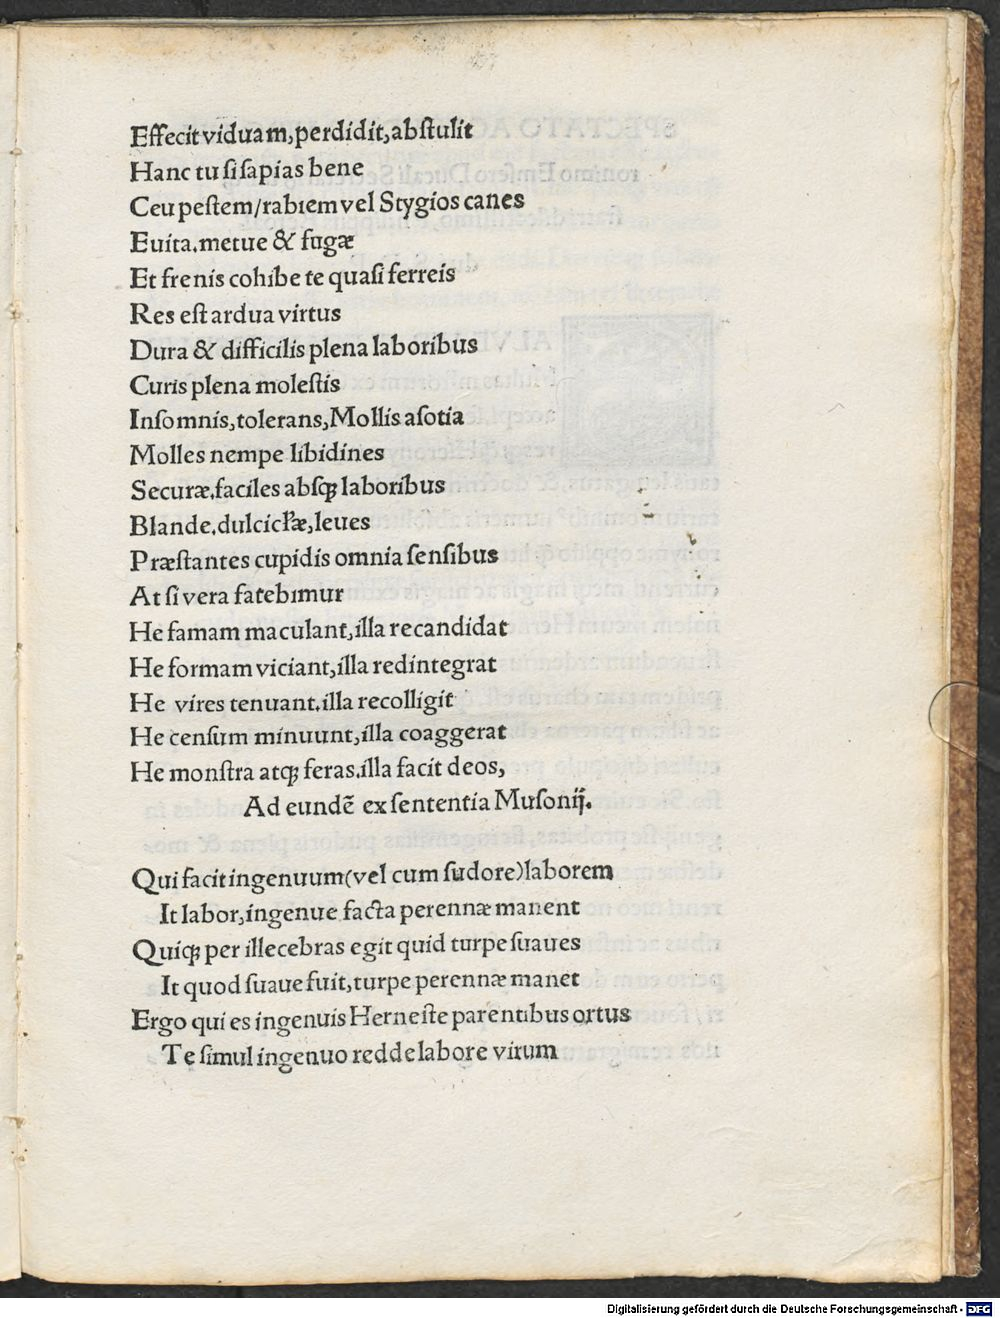 Effecit viduam,perdidit,abſtulit
Hanc tu ſi ſapias bene
Ceu peſtem/rabiem vel Stygios canes
Euita.metue & fugæ
Et frenis cohibe te quaſi ferreis
Res eſt ardua virtus
Dura & difficilis plena laboribus
Curis plena moleſtis
Inſomnis,tolerans,Mollis aſotia
Molles nempe libidines
Securæ.faciles abſqꝫ laboribus
Blande.dulcicl̃æ,leues
Præſtantes cupidis omnia ſenſibus
At ſi vera fatebimur
He famam maculant,illa recandidat
He formam viciant,illa redintegrat
He vires tenuant.illa recolligit
He cenſum minuunt,illa coaggerat
He monſtra atqꝫ feras.illa facit deos,
Ad eundē ex ſententia Muſonij.
Qui facit ingenuum(vel cum ſudore)laborem
It labor,ingenue facta perennæ manent
Quiqꝫ per illecebras egit quid turpe ſuaues
It quod ſuaue fuit,turpe perennæ manet
Ergo qui es ingenuis Herneſte parentibus ortus
Te ſimul ingenuo redde labore virum
Digitalisierung gefördert durch die Deutsche Forschungsgemeinschaft - DFG